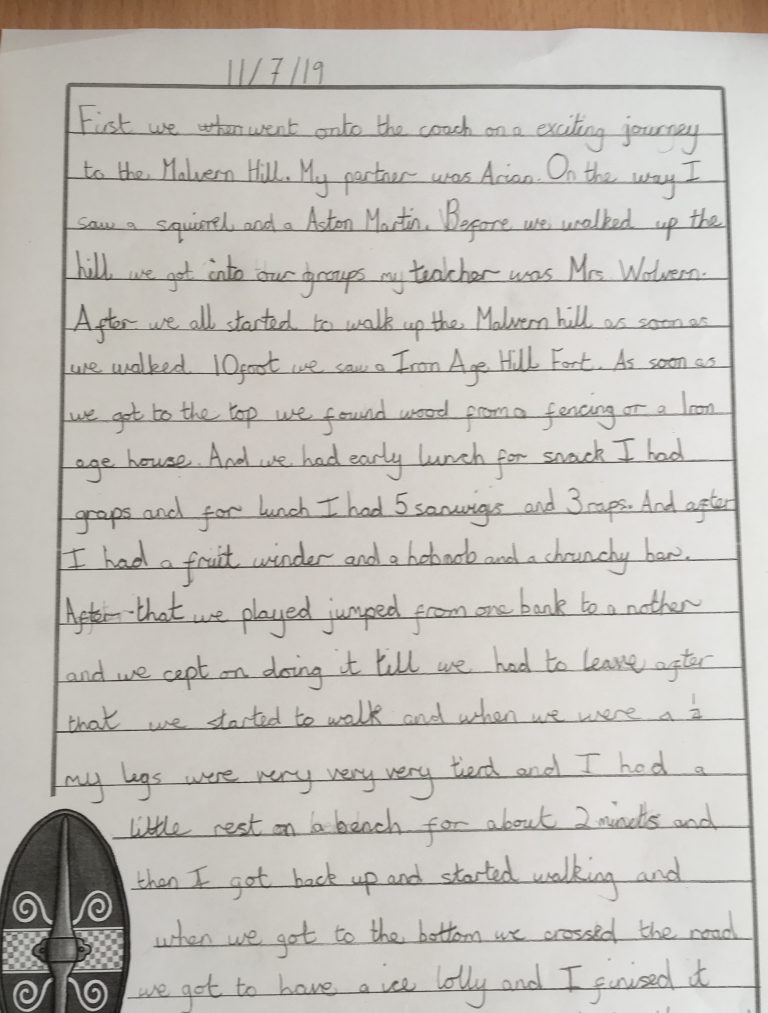 11/7/19
First we when went onto the coach on a exciting journey
to the Malvern Hill. My partner was Arian. On the way I
saw a squirrel and a Aston Martin. Before we walked up the
hill we got into our groups my teacher was Mrs Wolvern.
After we all started to walk up the Malvern hill as soon as
we walked 10foot we saw a Iron Age Hill Fort. As soon as
we got to the top we found wood from a fencing or a Iron
age house. And we had early lunch for snack I had
graps and for lunch I had 5 sanwigs and 3 raps. And after
I had a fruit winder and a hobnob and a chrunchy bar.
After that we played jumped from one bank to a nother
and we cept on doing it till we had to leave after
that we started to walk and when we were a ½
my legs were very very very tierd and I had a
little rest on a bench for about 2 minets and
then I got back up and started walking and
when we got to the bottom we crossed the road
we got to have a ice lolly and I finised it